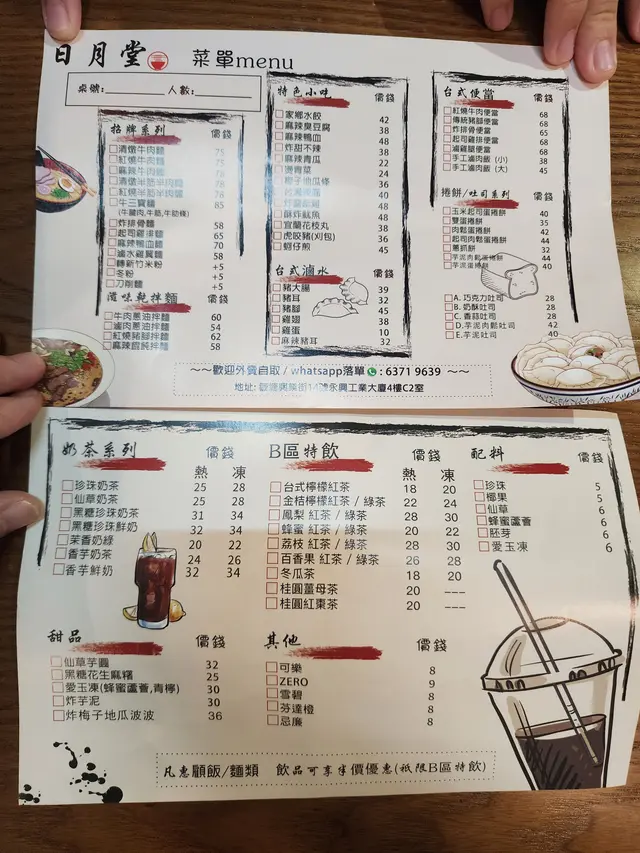 日月堂 菜單menu
桌號:　人數:
招牌系列 價錢
清燉牛肉麵 75
紅燒牛肉麵 75
麻辣牛肉麵
清燉半筋半肉麵
紅燒半筋半肉麵
牛三寶麵 85
(牛腱肉,牛筋,牛肋條)
炸排骨麵 58
起司雞排麵 65
麻辣鴨血麵 70
滷水雞翼麵 58
轉新竹米粉 +5
冬粉 +5
刀削麵 +5
滋味乾拌麵 價錢
牛肉蔥油拌麵 60
滷肉蔥油拌麵 54
紅燒豬腳拌麵 62
麻辣餛飩拌麵 58
特色小吃 價錢
家鄉水餃 42
麻辣臭豆腐 38
麻辣鴨血 48
炸甜不辣 38
麻辣青瓜 22
燙青菜 24
梅子地瓜條 36
40
48
酥炸魷魚 48
宜蘭花枝丸 38
虎咬豬(刈包) 36
蚵仔煎 45
台式滷水 價錢
豬大腸 39
豬耳 32
豬腳 45
雞翅 38
雞蛋 10
麻辣豬耳 32
台式便當 價錢
紅燒牛肉便當 68
傳統豬腳便當 68
炸排骨便當 65
起司雞排便當 68
滷雞腿便當 68
手工滷肉飯 (小) 38
手工滷肉飯 (大) 45
捲餅/吐司系列 價錢
玉米起司蛋捲餅 40
雙蛋捲餅 35
肉鬆蛋捲餅 42
起司肉鬆蛋捲餅 44
蔥抓餅 32
芋泥肉鬆蛋捲餅 44
芋泥蛋捲餅 40
A. 巧克力吐司 28
B. 奶酥吐司 28
C. 香蒜吐司 28
D. 芋泥肉鬆吐司 42
E. 芋泥吐司 40
~~歡迎外賣自取 / whatsapp落單 : 6371 9639 ~~
地址: 觀塘興業街14號永興工業大廈4樓C2室
奶茶系列 價錢
熱 凍
珍珠奶茶 25 28
仙草奶茶 25 28
黑糖珍珠奶茶 31 34
黑糖珍珠鮮奶 32 34
茉香奶綠 20 22
香芋奶茶 24 26
香芋鮮奶 32 34
B區特飲 價錢
熱 凍
台式檸檬紅茶 18 20
金桔檸檬紅茶 / 綠茶 22 24
鳳梨 紅茶 / 綠茶 28 30
蜂蜜 紅茶 / 綠茶 20 22
荔枝 紅茶 / 綠茶 28 30
百香果 紅茶 / 綠茶 26 28
冬瓜茶 18 20
桂圓薑母茶 20 ---
桂圓紅棗茶 20 ---
配料 價錢
珍珠 5
椰果 5
仙草 6
蜂蜜蘆薈 6
胚芽 6
愛玉凍 6
甜品 價錢
仙草芋圓 32
黑糖花生麻糬 25
愛玉凍(蜂蜜蘆薈,青檸) 30
炸芋泥 30
炸梅子地瓜波波 36
其他 價錢
可樂 8
ZERO 9
雪碧 8
芬達橙 8
忌廉 8
凡惠顧飯/麵類　飲品可享半價優惠(祇限B區特飲)